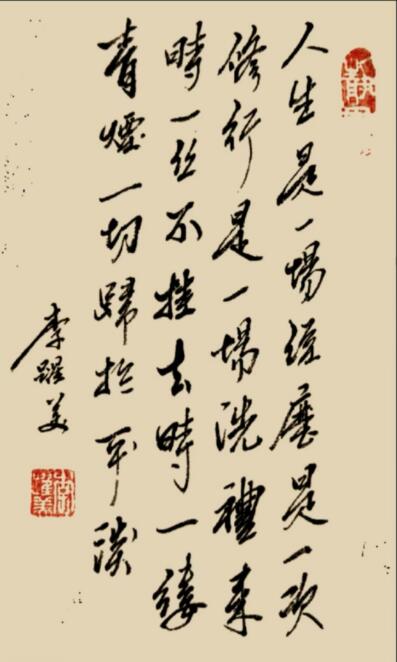 人生是一場经歷是一次
修行是一場洗禮來
時一丝不挂去時一縷
青煙一切歸於平淡
李躍美